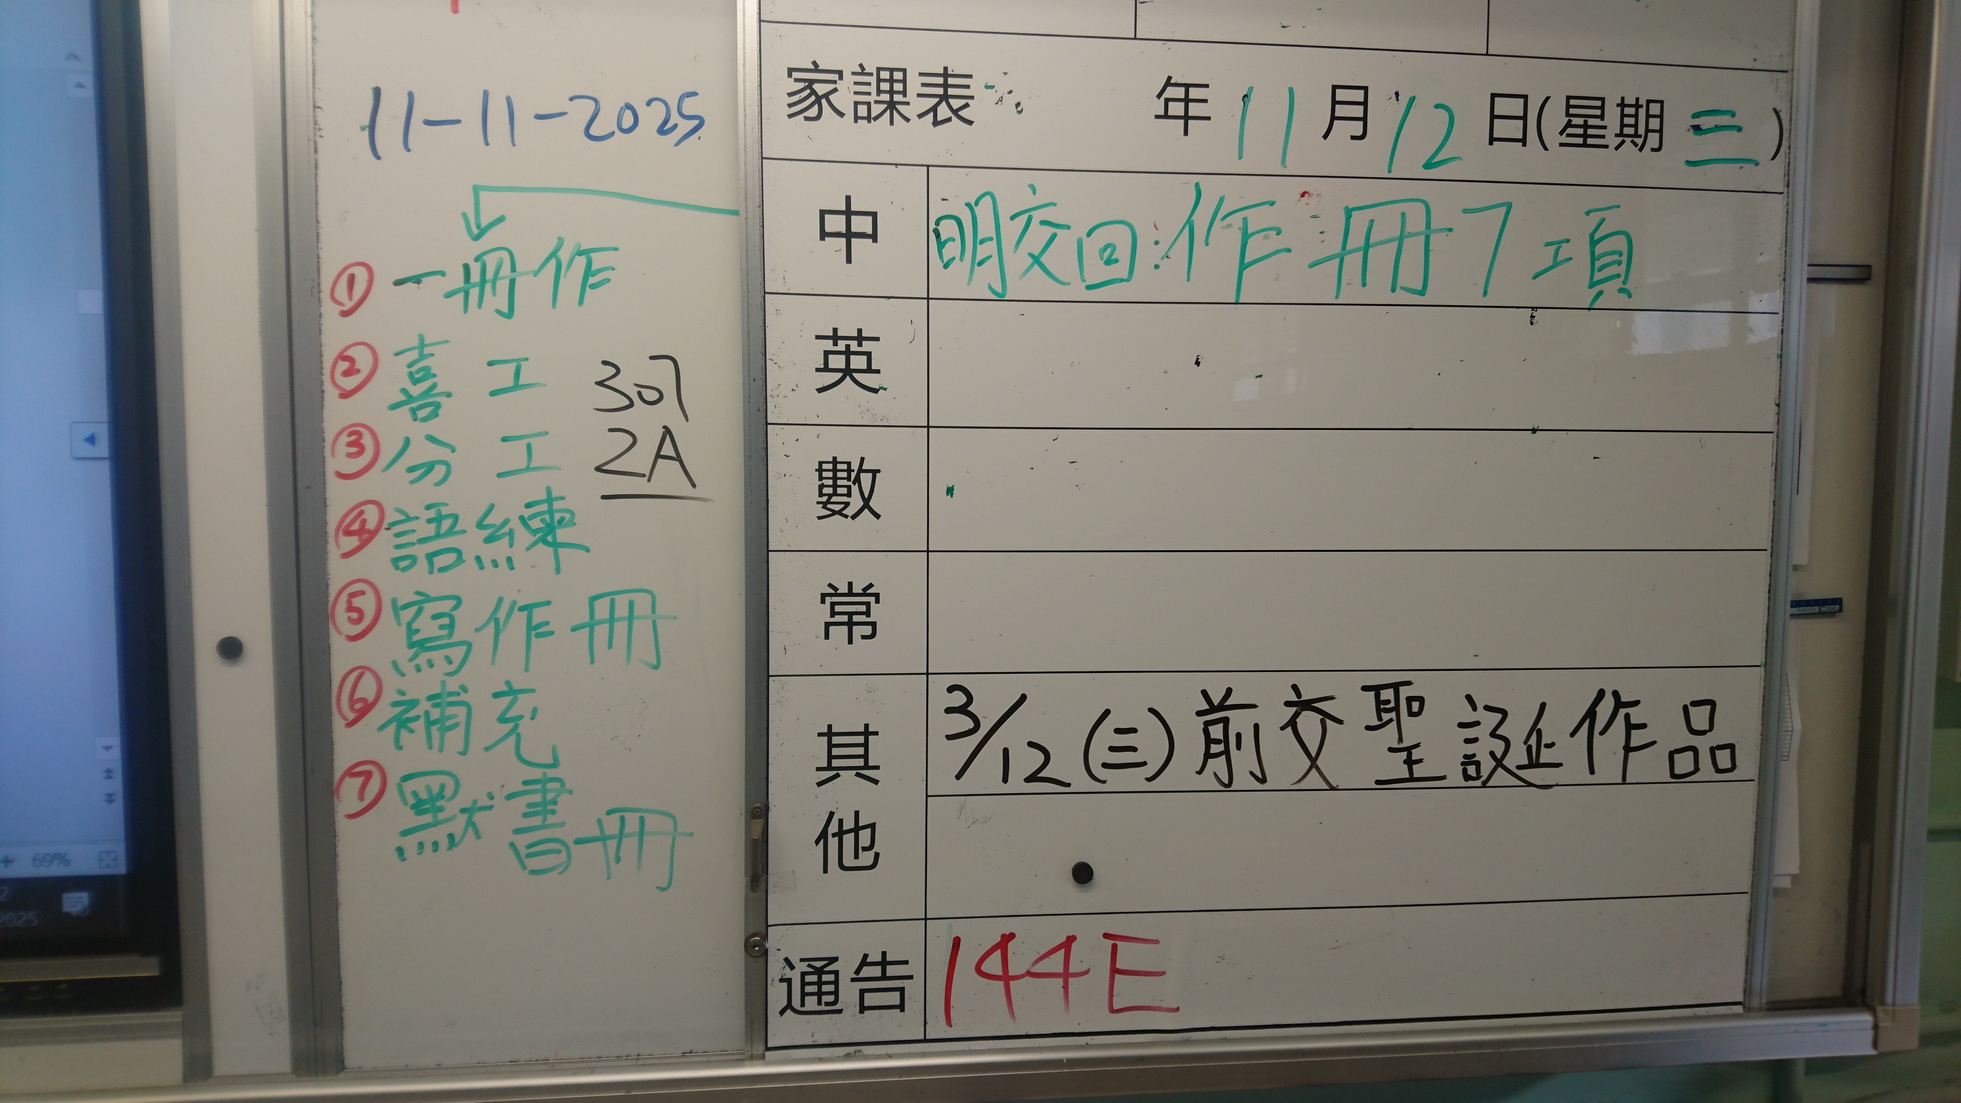 11-11-2025
① 一冊作
② 喜工 307
③ 分工 2A
④ 語練
⑤ 寫作冊
⑥ 補充
⑦ 默書冊
家課表 年11月12日(星期三)
中 明交回:作冊7項
英
數
常
其他 3/12(三)前交聖誕作品
通告 144E
69%
2025